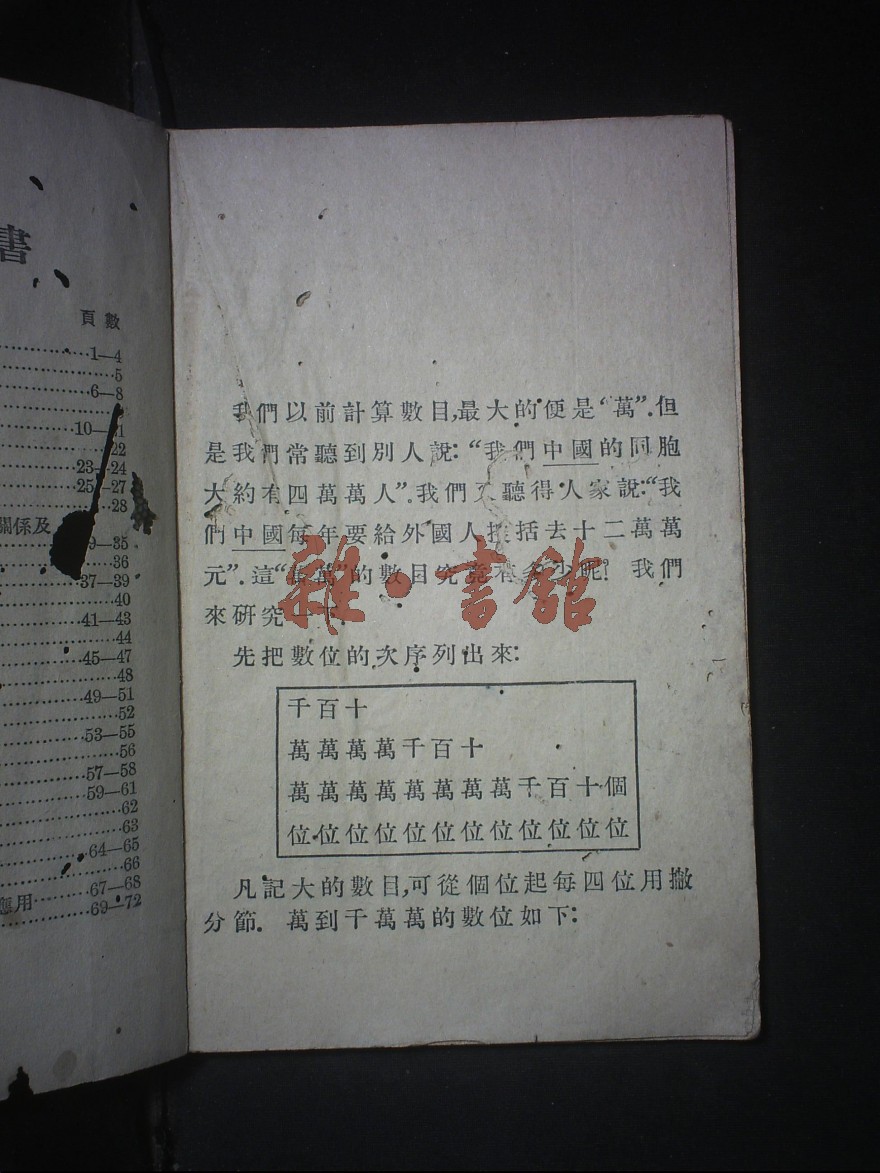 書
頁數
1—4
5
6—8
10—
22
23—24
25—27
28
關係及
—35
36
37—39
40
41—43
44
45—47
48
49—51
52
53—55
56
57—58
59—61
62
63
64—65
66
應用 67—68
69—72
我們以前計算數目,最大的便是“萬”.但
是我們常聽到別人說:“我們中國的同胞
大約有四萬萬人”.我們又聽得人家說:“我
們中國每年要給外國人 括去十二萬萬
元”.這“ 萬”的數目究竟有多少呢? 我們
來研究一
先把數位的次序列出來:
千百十
萬萬萬萬千百十
萬萬萬萬萬萬萬萬千百十個
位位位位位位位位位位位位
凡記大的數目,可從個位起每四位用撇
分節. 萬到千萬萬的數位如下:
雜·書館